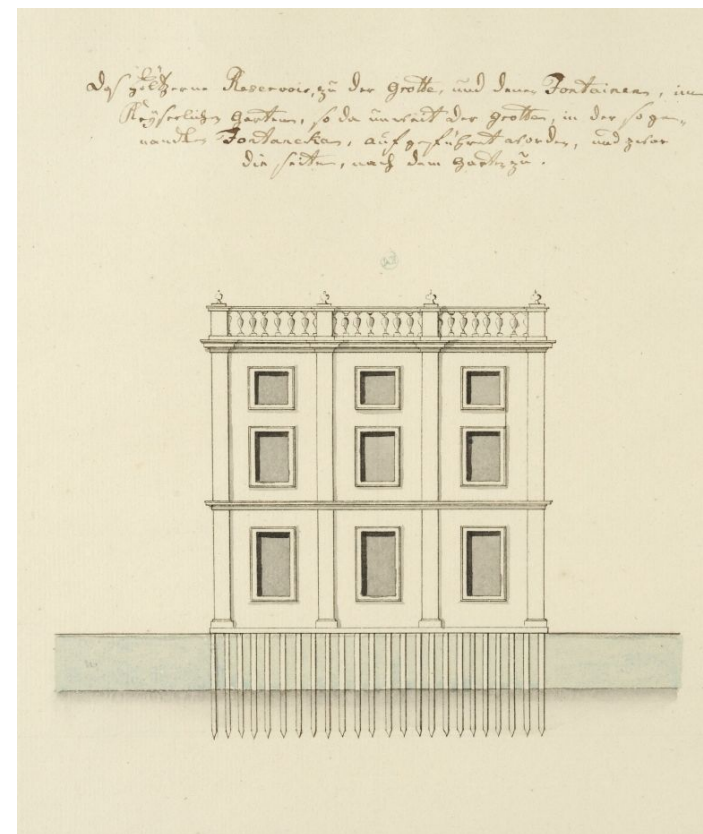 Das höltzerne Reservoir, zu der Grotte, und denen Fontainen, im
Käyserlichen Garten, so da unweit der Grotten, in der soge-
nandten Fontancka, aufgeführet worden, und zwar
die seiten, nach dem Garten zu.